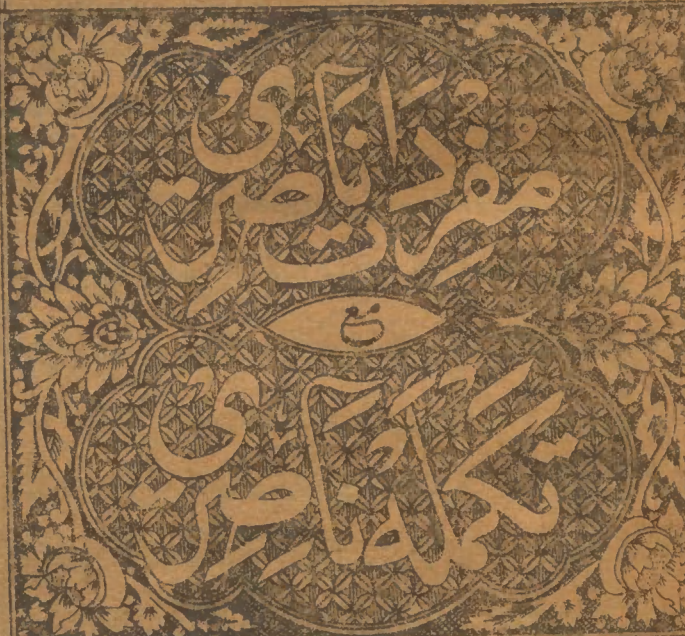 مُفردات ناصِری
مع
تکملهٔ ناصِری